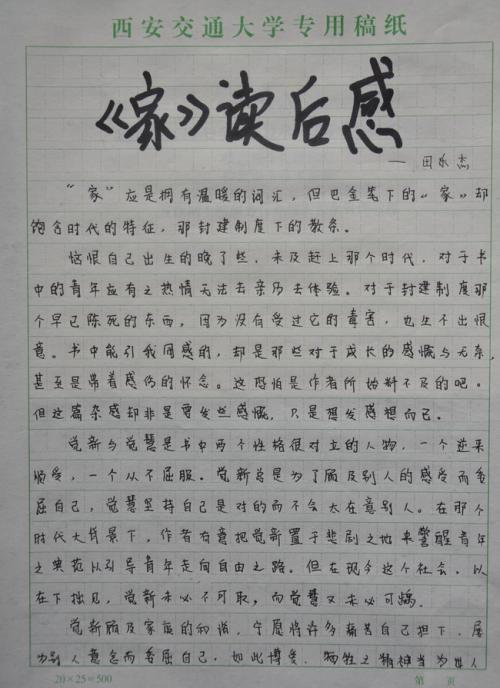 西安交通大学专用稿纸
《家》读后感
— 田永杰
“家”应是拥有温暖的词汇，但巴金笔下的“家”却
饱含时代的特征，那封建制度下的教条。
恼恨自己出生的晚了些，未及赶上那个时代，对于书
中的青年应有之热情无法去亲历去体验。对于封建制度那
个早已陈死的东西，因为没有受过它的毒害，也生不出恨
意。书中能引我同感的，却是那些对于成长的感慨与无奈，
甚至是带着感伤的怀念。这恐怕是作者所始料不及的吧。
但这篇杂感却非是要发些感慨，只是想发感想而已。
觉新与觉慧是书中两个性格很对立的人物，一个逆来
顺受，一个从不屈服。觉新总是为了顾及别人的感受而委
屈自己，觉慧坚持自己是对的而不会太在意别人。在那个
时代大背景下，作者有意把觉新置于悲剧之地来警醒青年
之典范以引导青年走向自由之路。但在现今这个社会，以
在下拙见，觉新未必不可取，而觉慧又未必可瞩。
觉新顾及家庭的和谐，宁愿将许多痛苦自己担下，屡
为别人意念而委屈自己，如此博爱、牺牲之精神当为世人
20×25=500
第 页